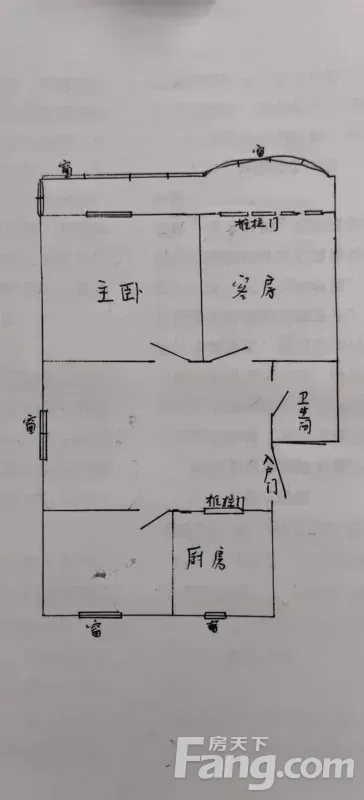 窗
窗
推拉门
主卧
客房
卫生间
窗
入户门
推拉门
厨房
窗
窗
房天下
Fang.com